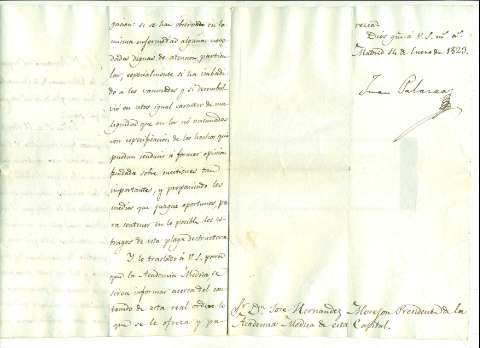 gacion: si se han observado en la
misma enfermedad algunas nove-
dades dignas de atencion particu-
lar, especialmente si ha invadi-
do a los vacunados y si desenvol-
vió en estos igual caracter de ma-
lignidad que en los no vacunados
con especificacion de los hechos que
puedan conducir á formar opinion
fundada sobre cuestiones tan
importantes, y proponiendo los
medios que juzgue oportunos pa
ra contener en lo posible los es-
tragos de esta plaga destructora.
Y lo traslado á V. S. para
que la Academia Médica se
sirva informar acerca del con-
tenido de esta real orden lo
que se le ofrezca y pa-
rezca.
Dios gue á V. S. ms. as.
Madrid 14 de Enero de 1823.
Juan Palarea
Sr. Dn. Jose Hernandez Morejon Presidente de la
Academia Médica de esta Capital.